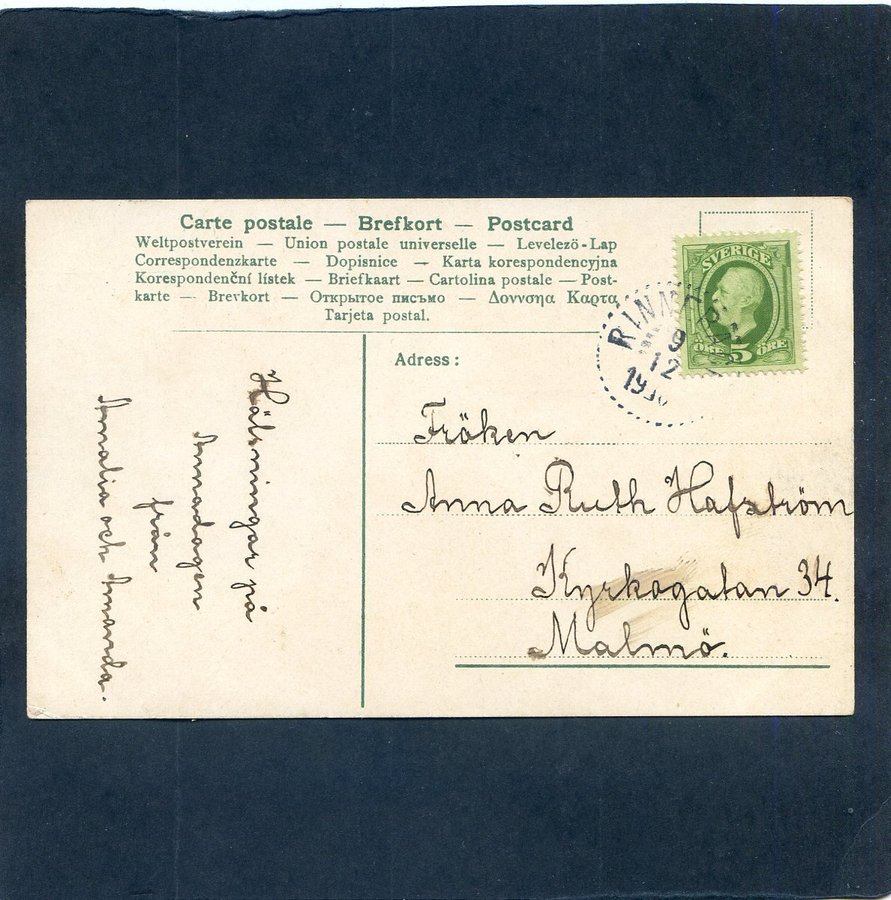 Carte postale — Brefkort — Postcard
Weltpostverein — Union postale universelle — Levelezö-Lap
Correspondenzkarte — Dopisnice — Karta korespondencyjna
Korespondenční lístek — Briefkaart — Cartolina postale — Post-
karte — Brevkort — Открытое письмо — Δονυσηα Καρτα
Tarjeta postal.
SVERIGE
ÖRE 5 ÖRE
9
12
Adress:
Fröken
Anna Ruth Hafström
Kyrkogatan 34.
Malmö.
Hälsningar på
Annadagen
från
Amalia och Amanda.